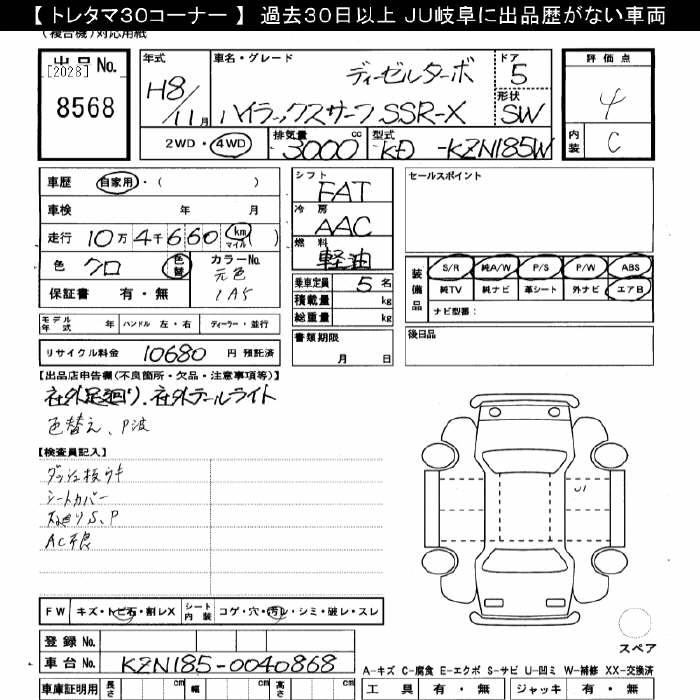 【トレタマ30コーナー】 過去30日以上 JU岐阜に出品歴がない車両
(複合機)対応用紙
[2028]
出品 No.
8568
年式 H8/11月
車名・グレード ディーゼルターボ
ハイラックスサーフ SSR-X
ドア 5
形状 SW
評価点 4
内装 C
2WD・4WD
排気量 3000 cc
型式 KD -KZN185W
車歴 自家用・( )
車検 年 月
走行 10万4千660 km マイル ( )
色 クロ 色替
カラーNo. 元色 1A5
保証書 有・無
モデル年式 年 ハンドル 左・右 ディーラー・並行
リサイクル料金 10680 円 預託済
シフト FAT
冷房 AAC
燃料 軽油
乗車定員 5 名
積載量 kg
総重量 kg
書類期限
月 日
セールスポイント
装備品
S/R 純A/W P/S P/W ABS
純TV 純ナビ 革シート 外ナビ エアB
ナビ型番:
後日品
【出品店申告欄(不良箇所・欠品・注意事項等)】
社外足廻り、社外テールライト
色替え、P波
【検査員記入】
ダッシュ板ウキ
シートカバー
S、P
AC不良
FW キズ・トビ石・割レX シート内装 コゲ・穴・汚レ・シミ・破レ・スレ
登録 No.
車台 No. KZN185-0040868
車庫証明用 長さ cm 幅 cm 高さ cm
U1
スペア
A-キズ C-腐食 E-エクボ S-サビ U-凹ミ W-補修 XX-交換済
工具 有・無 ジャッキ 有・無